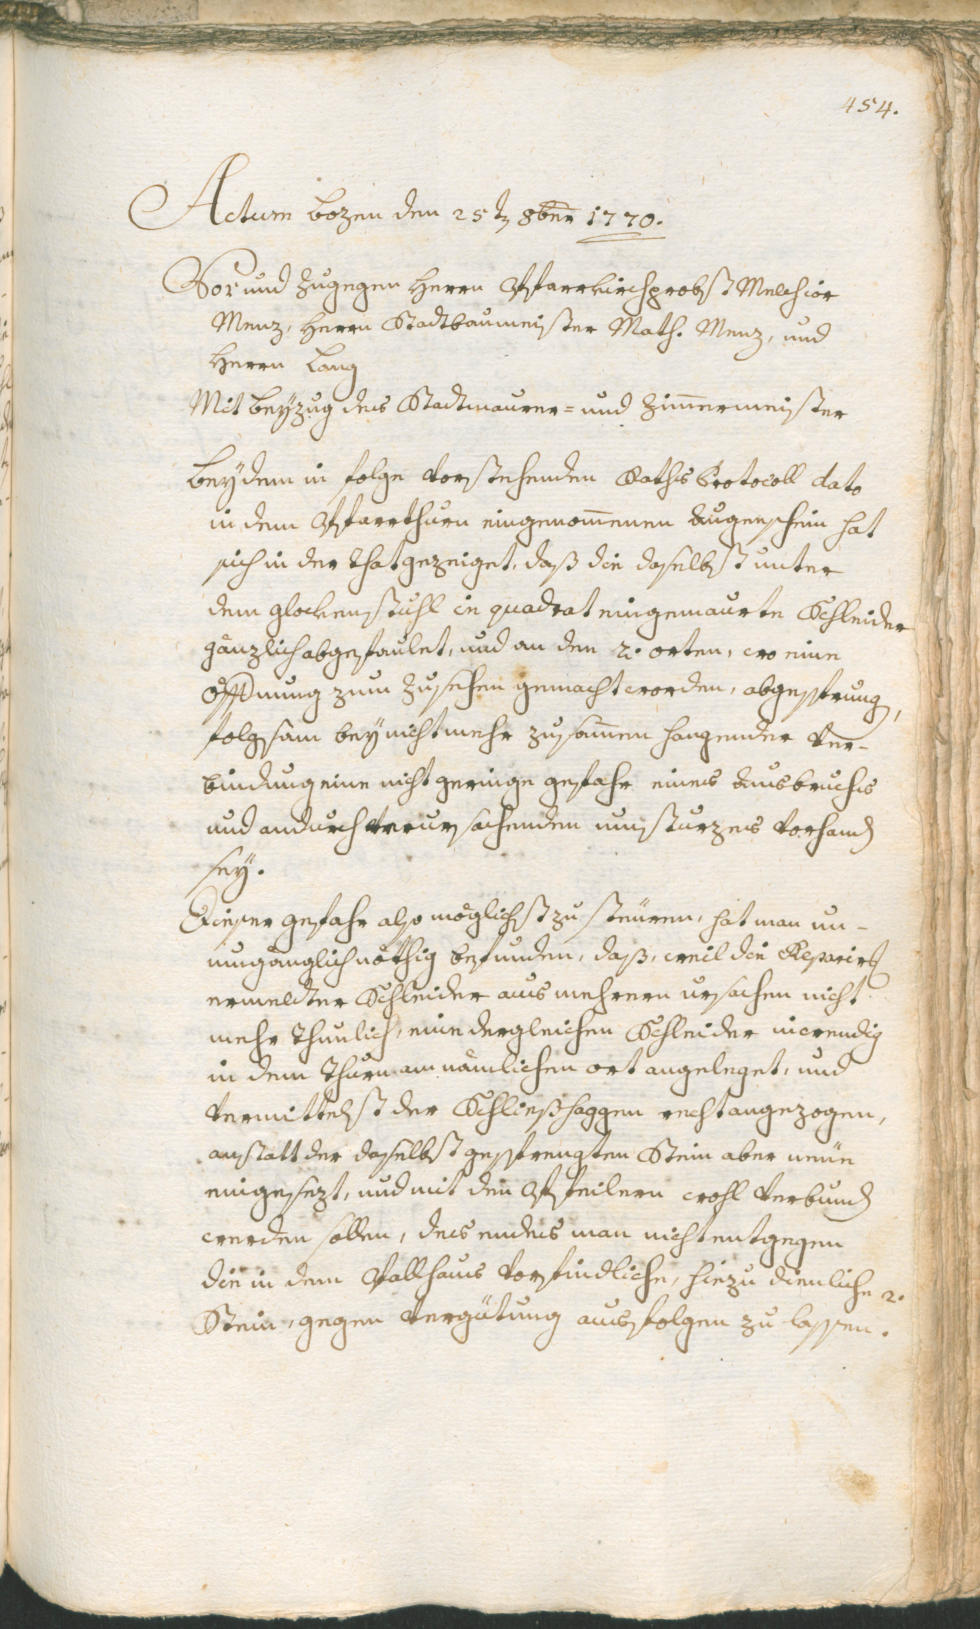 454.
Actum Bozen den 25 t. 8ber 1770.
Vor und zugegen Herrn Pfarrkirchprobst Melchior
Menz, Herrn Stadtbaumeister Math. Menz, und
Herrn Lang
Mit Beÿzug des Stadtmaurer= und Zimmermeister
Beÿ dem in folge vorstehenden Raths Protocoll dato
in dem Pfarrthurn eingenommenen Augenschein hat
sich in der That gezeiget, daß die daselbst unter
dem glockenstuhl in quadrat eingemaurte Schleider
gänzlich abgefaulet, und an den 2. orten, wo eine
öffnung zum Zusehen gemacht worden, abgesprung,
folgsam beÿ nicht mehr zusammen hangender Ver-
bindung eine nicht geringe gefahr eines Ausbruchs
und andurch verursachenden umsturzes vorhand
seÿ.
Dieser gefahr also möglichst zu steüren, hat man un-
umgänglich nöthig befunden, daß, weil die Reparier
ermeldter Schleider aus mehrern ursachen nicht
mehr thunlich, eine dergleichen Schleider inwendig
in dem Thurn am nämlichen ort angeleget, und
vermittelst der Schließhaggen recht angezogen,
anstatt der daselbst gesprengten Stein aber neüe
eingesezt, und mit den Pfeilern wohl verbund
werden sollen, des endes man nicht entgegen
die in dem Pallhaus vorfindliche, hiezu dienliche 2.
Stein, gegen Vergütung ausfolgen zu lassen.